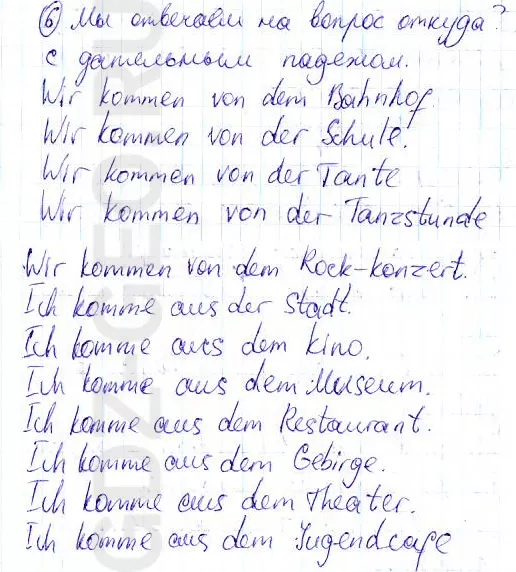 ⑥ Мы отвечаем на вопрос откуда?
с дательным падежом.
Wir kommen von dem Bahnhof
Wir kommen von der Schule.
Wir kommen von der Tante
Wir kommen von der Tanzstunde
Wir kommen von dem Rock-konzert.
Ich komme aus der Stadt.
Ich komme aus dem Kino.
Ich komme aus dem Museum.
Ich komme aus dem Restaurant.
Ich komme aus dem Gebirge.
Ich komme aus dem Theater.
Ich komme aus dem Jugendcafe
GDZ-GEO.RU